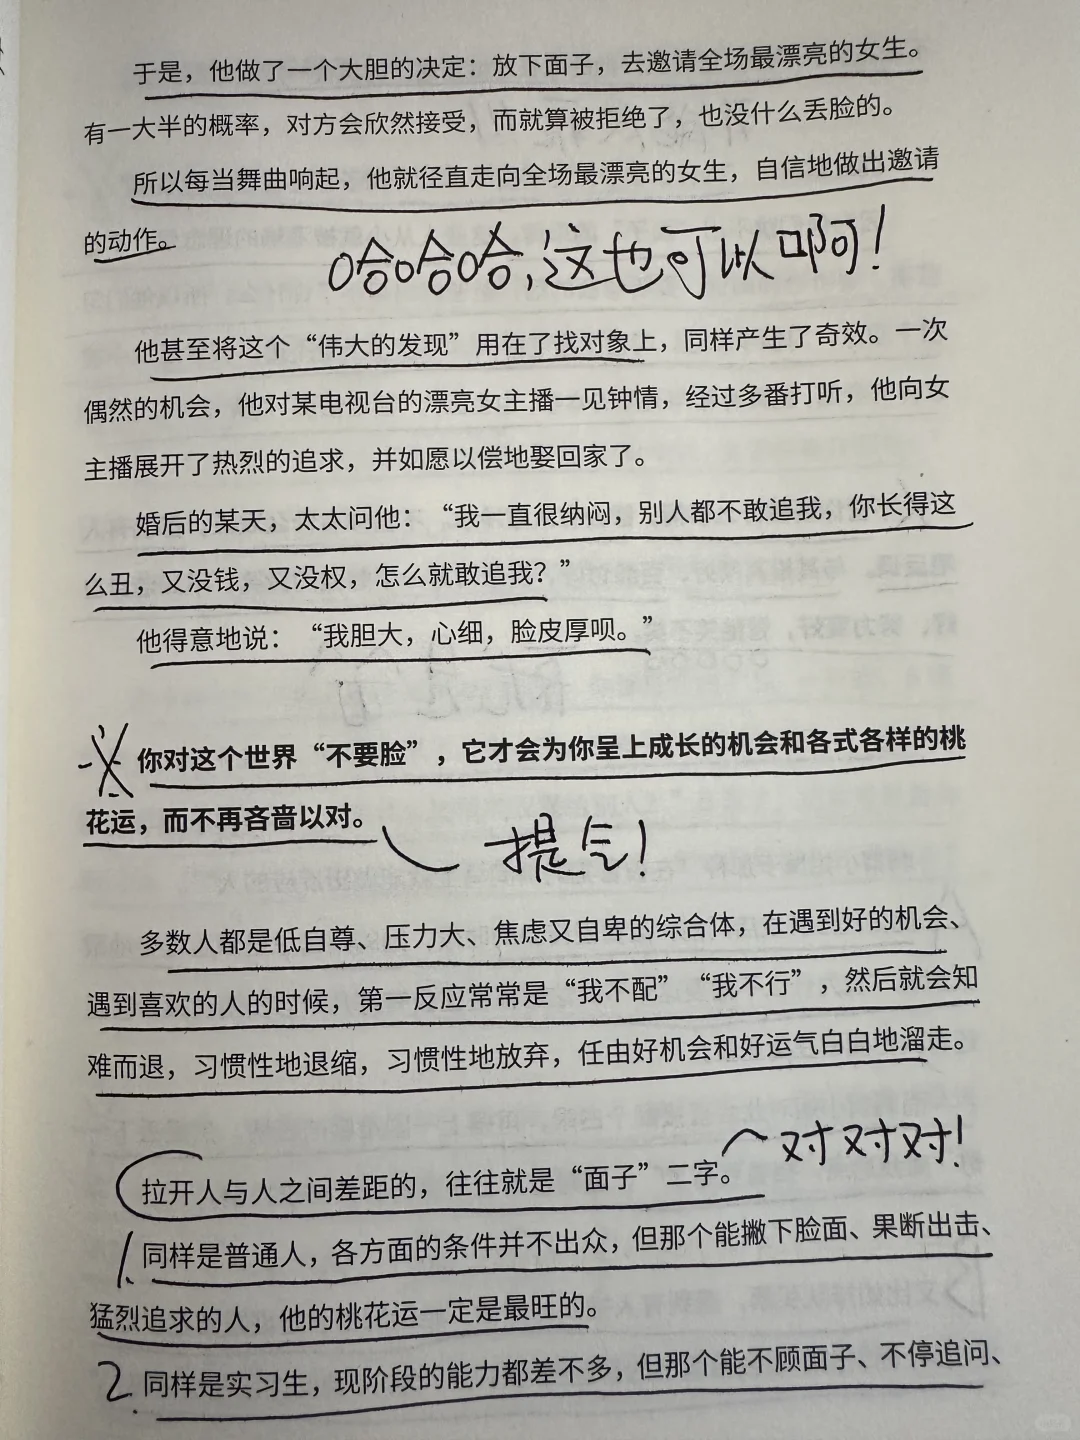 于是，他做了一个大胆的决定：放下面子，去邀请全场最漂亮的女生。
有一大半的概率，对方会欣然接受，而就算被拒绝了，也没什么丢脸的。
所以每当舞曲响起，他就径直走向全场最漂亮的女生，自信地做出邀请
的动作。
哈哈哈，这也可以啊！
他甚至将这个“伟大的发现”用在了找对象上，同样产生了奇效。一次
偶然的机会，他对某电视台的漂亮女主播一见钟情，经过多番打听，他向女
主播展开了热烈的追求，并如愿以偿地娶回家了。
婚后的某天，太太问他：“我一直很纳闷，别人都不敢追我，你长得这
么丑，又没钱，又没权，怎么就敢追我？”
他得意地说：“我胆大，心细，脸皮厚呗。”
你对这个世界“不要脸”，它才会为你呈上成长的机会和各式各样的桃
花运，而不再吝啬以对。
提气！
多数人都是低自尊、压力大、焦虑又自卑的综合体，在遇到好的机会、
遇到喜欢的人的时候，第一反应常常是“我不配”“我不行”，然后就会知
难而退，习惯性地退缩，习惯性地放弃，任由好机会和好运气白白地溜走。
对对对！
拉开人与人之间差距的，往往就是“面子”二字。
1. 同样是普通人，各方面的条件并不出众，但那个能撇下脸面、果断出击、
猛烈追求的人，他的桃花运一定是最旺的。
2. 同样是实习生，现阶段的能力都差不多，但那个能不顾面子、不停追问、